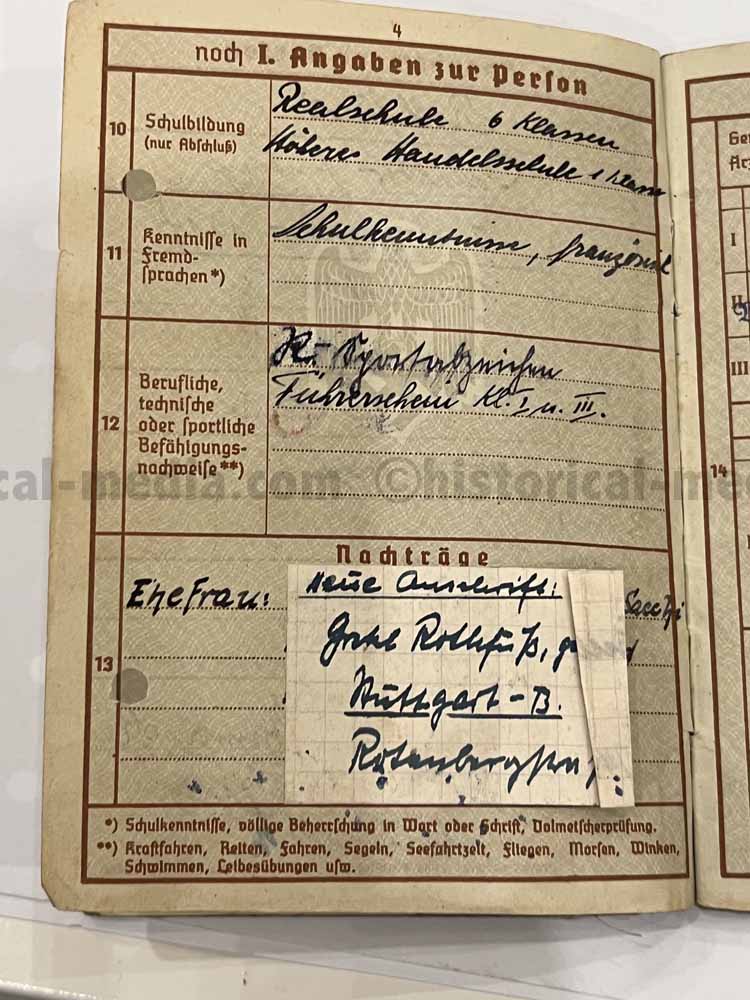 4
noch I. Angaben zur Person
10 Schulbildung (nur Abschluß)
Realschule 6 Klassen
Höhere Handelsschule 1 Klasse
11 Kenntnisse in Fremdsprachen *)
Schulkenntnisse, französisch
12 Berufliche, technische oder sportliche Befähigungsnachweise **)
Sportabzeichen
Führerschein Kl. I u. III.
Nachträge
13
Ehefrau:
Neue Anschrift:
Rothfuß,
Stuttgart-B.
*) Schulkenntnisse, völlige Beherrschung in Wort oder Schrift, Dolmetscherprüfung.
**) Kraftfahren, Reiten, Fahren, Segeln, Seefahrtzeit, Fliegen, Morsen, Winken,
Schwimmen, Leibesübungen usw.
14
I
III
cal-media.com ©historical-me